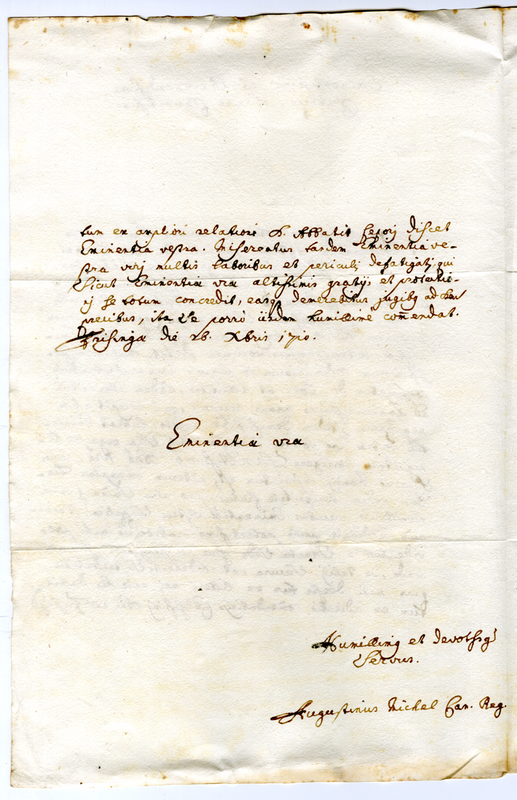 tum ex anpliori relatione D. Abbatis Lesorij discet
Eminentia vestra. Misereatur tandem Eminentia ve-
stra virj multis laboribus et periculis defatigatj, qui
sicut Eminentiæ vræ altissimis gratijs et protectio-
nj se totum concredit, easque demerebitur jugibus ad
precibus, ita se porro iisdem humillimè com̃endat.
Frisinga die 26. Xbris 1710.
Eminentiæ vræ
Humillimus et devotissg
Servus.
Augustinus Michel Can. Reg.